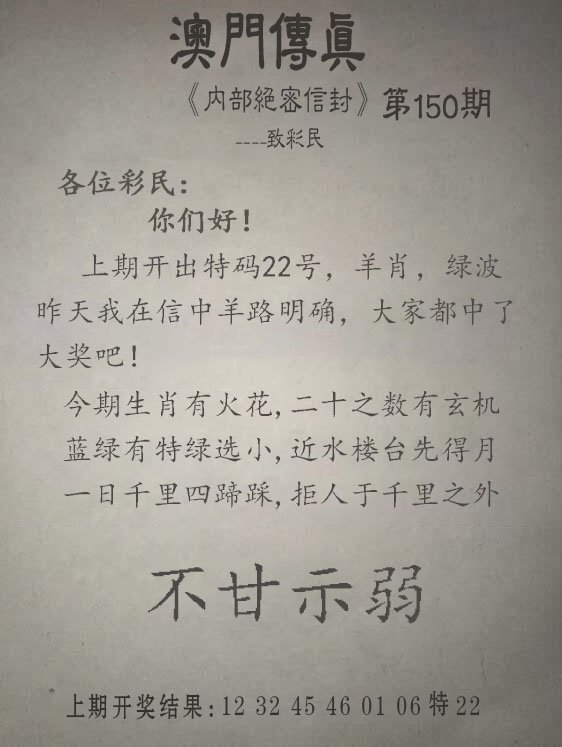 澳門傳眞
《内部絕密信封》第150期
----致彩民
各位彩民:
你们好!
上期开出特码22号，羊肖，绿波
昨天我在信中羊路明确，大家都中了
大奖吧!
今期生肖有火花,二十之数有玄机
蓝绿有特绿选小,近水楼台先得月
一日千里四蹄踩,拒人于千里之外
不甘示弱
上期开奖结果:12 32 45 46 01 06 特 22